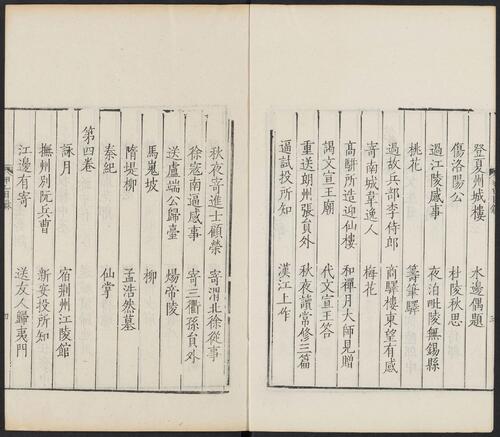 登夏州城樓 水邊偶題
傷洛陽公 杜陵秋思
過江陵感事 夜泊毗陵無錫縣
桃花 籌筆驛
過故兵部李侍郎 商驛樓東望有感
寄南城韋逸人 梅花
高駢所造迎仙樓 和禪月大師見贈
謁文宣王廟 代文宣王答
重送朗州張員外 秋夜讀常修三篇
逼試投所知 漢江上作
秋夜寄進士顧榮 寄渭北徐從事
徐寇南逼感事 寄三衢孫員外
送盧端公歸臺 煬帝陵
馬嵬坡 柳
隋堤柳 孟浩然墓
秦紀 仙掌
第四卷
詠月 宿荊州江陵館
撫州別阮兵曹 新安投所知
江邊有寄 送友人歸夷門